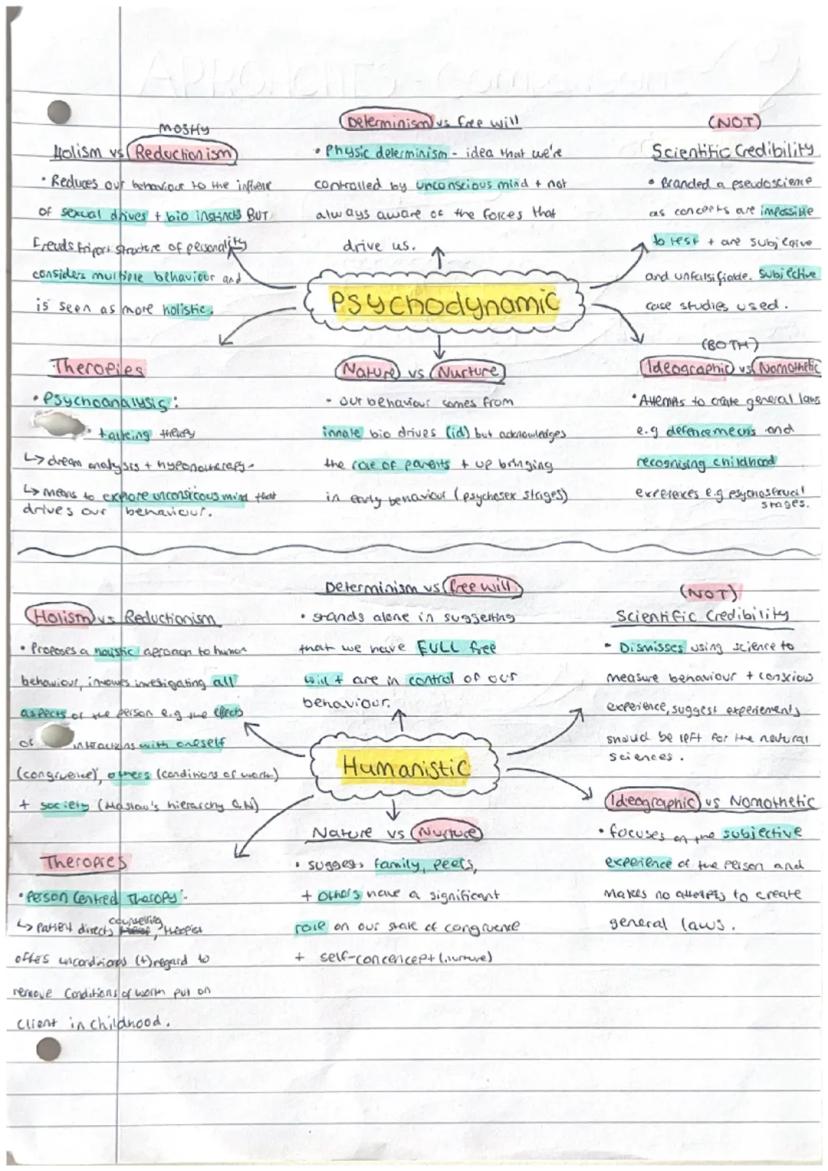 MOSTLY
Holism vs Reductionism
• Reduces our behaviour to the influence
of sexual drives + bio instincts BUT
Freuds tripart structure of personality
considers multiple behaviour and
is seen as more holistic.
Determinism vs free will
• Physic determinism - idea that we're
controlled by unconscious mind + not
always aware of the forces that
drive us.
(NOT)
Scientific Credibility
• Branded a pseudoscience
as concepts are impossible
to test + are subjective
and unfalsifiable. Subjective
case studies used.
Psychodynamic
Therapies
• Psychoanalysis:
talking therapy
↳ dream analysis + hypnotherapy.
↳ means to explore unconsicous mind that
drives our behaviour.
Nature vs Nurture
- our behaviour comes from
innate bio drives (id) but acknowledges
the role of parents + up bringing
in early behaviour (psychosex stages)
(BOTH)
Ideographic vs Nomothetic
• Attempts to create general laws
e.g defence mechs and
recognising childhood
experiences e.g psychosexual
stages.
Holism vs Reductionism
• Proposes a holistic approach to human
behaviour, involves investigating all
aspects of the person e.g the effects
of interactions with oneself
(congruence), others (conditions of worth)
+ society (Maslow's hierarchy of N)
Determinism vs free will
• stands alone in suggesting
that we have FULL free
will + are in control of our
behaviour.
(NOT)
Scientific Credibility
• Dismisses using science to
measure behaviour + conscious
experience, suggest experiements
should be left for the natural
sciences.
Humanistic
Therapies
• Person Centred Therapy:
counselling
↳ patient directs, therapist
offers unconditional (+) regard to
remove conditions of worth put on
client in childhood.
Nature vs Nurture
• suggests family, peers,
+ others have a significant
role on our state of congruence
+ self-concencept (nurture)
Ideographic vs Nomothetic
• focuses on the subjective
experience of the person and
makes no attempts to create
general laws.